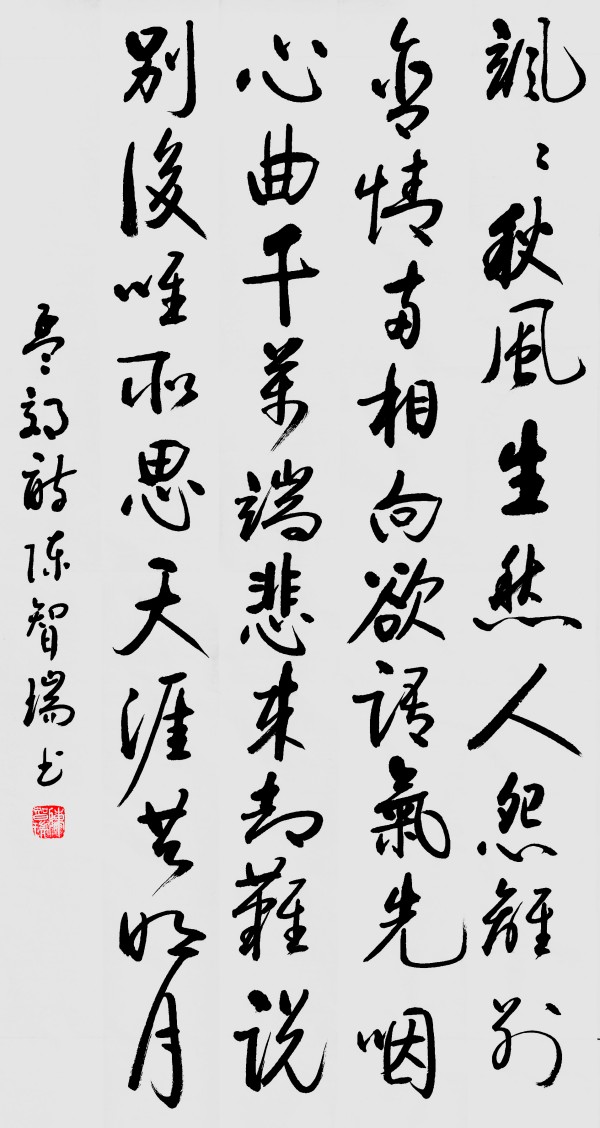 颯々秋風生愁人怨離别
含情兩相向欲語氣先咽
心曲千萬端悲来却難説
别後唯所思天涯共明月
孟郊詩陳智瑞书